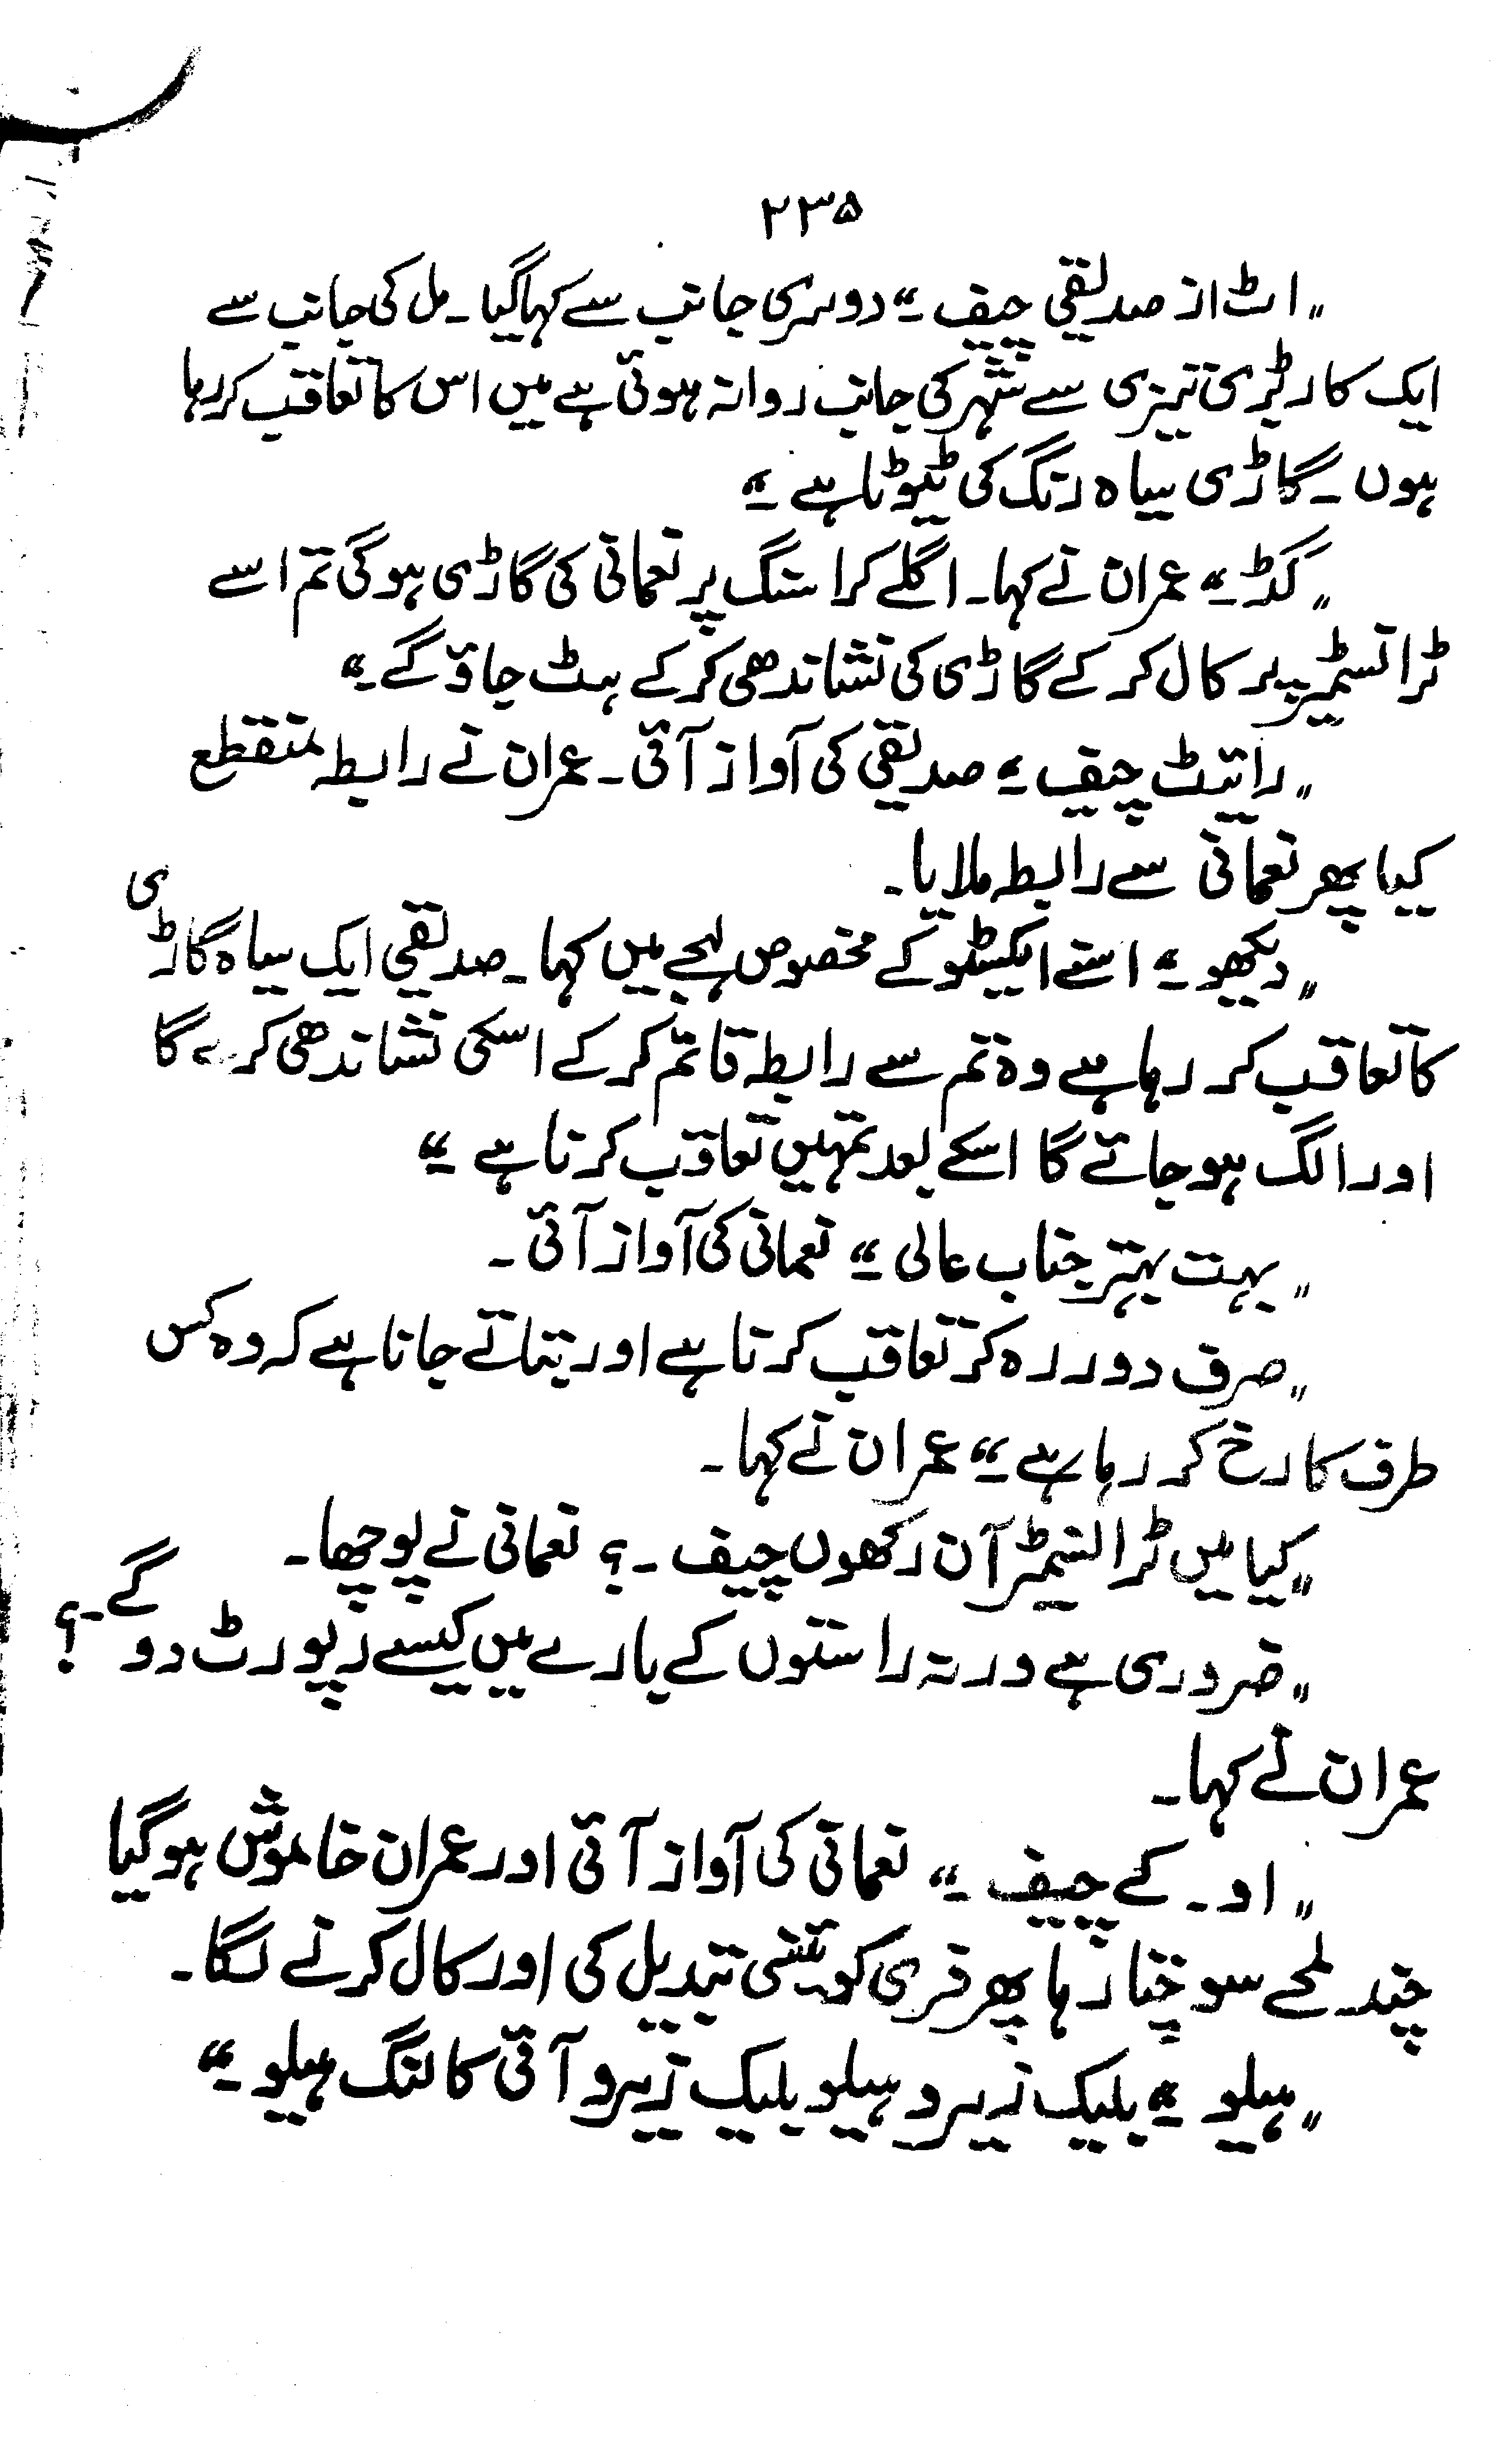 ۲۳۵
"اٹ از صدیقی چیف۔" دوسری جانب سے کہا گیا۔ مل کی جانب سے
ایک کار بڑی تیزی سے شہر کی جانب روانہ ہوئی ہے میں اس کا تعاقب کر رہا
ہوں۔ گاڑی سیاہ رنگ کی ٹیوٹا ہے۔"
"گڈ۔" عمران نے کہا۔ اگلے کراسنگ پر نعمانی کی گاڑی ہو گی تم اسے
ٹرانسمیٹر پر کال کر کے گاڑی کی نشاندھی کر کے ہٹ جاؤ گے۔"
"رائیٹ چیف۔" صدیقی کی آواز آئی۔ عمران نے رابطہ منقطع
کیا پھر نعمانی سے رابطہ ملایا۔
"دیکھو۔" اسنے ایکسٹو کے مخصوص لہجے میں کہا۔ صدیقی ایک سیاہ گاڑی
کا تعاقب کر رہا ہے وہ تم سے رابطہ قائم کر کے اسکی نشاندھی کرے گا
اور الگ ہو جائے گا اسکے بعد تمہیں تعاقب کرنا ہے۔"
"بہت بہتر جناب عالی۔" نعمانی کی آواز آئی۔
"صرف دور رہ کر تعاقب کرنا ہے اور بتاتے جانا ہے کہ وہ کس
طرف کا رخ کر رہا ہے۔" عمران نے کہا۔
"کیا میں ٹرانسمیٹر آن رکھوں چیف۔؟ نعمانی نے پوچھا۔
"ضروری ہے ورنہ راستوں کے بارے میں کیسے رپورٹ دو گے۔؟
عمران نے کہا۔
"او۔ کے چیف۔" نعمانی کی آواز آئی اور عمران خاموش ہو گیا
چند لمحے سوچتا رہا پھر فری کوئنسی تبدیل کی اور کال کرنے لگا۔
"ہیلو۔" بلیک زیرو ہیلو بلیک زیرو آئی کالنگ ہیلو۔"